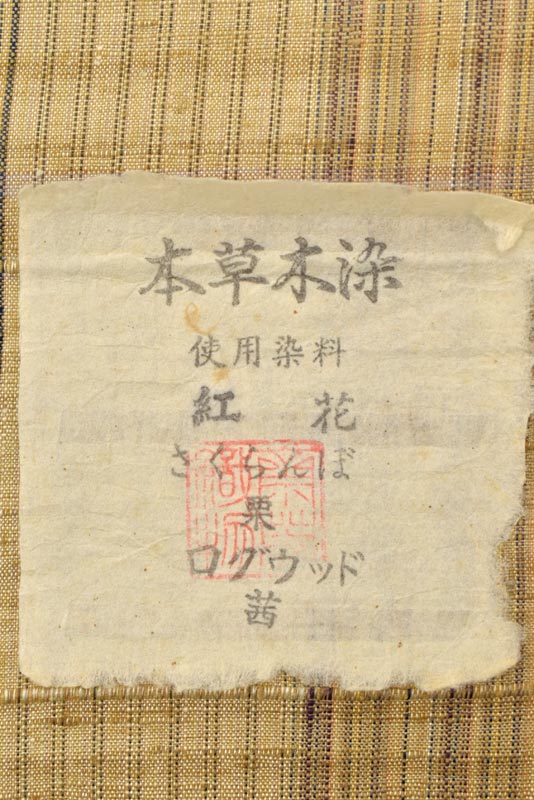 本草木染
使用染料
紅 花
さくらんぼ
栗
ログウッド
茜